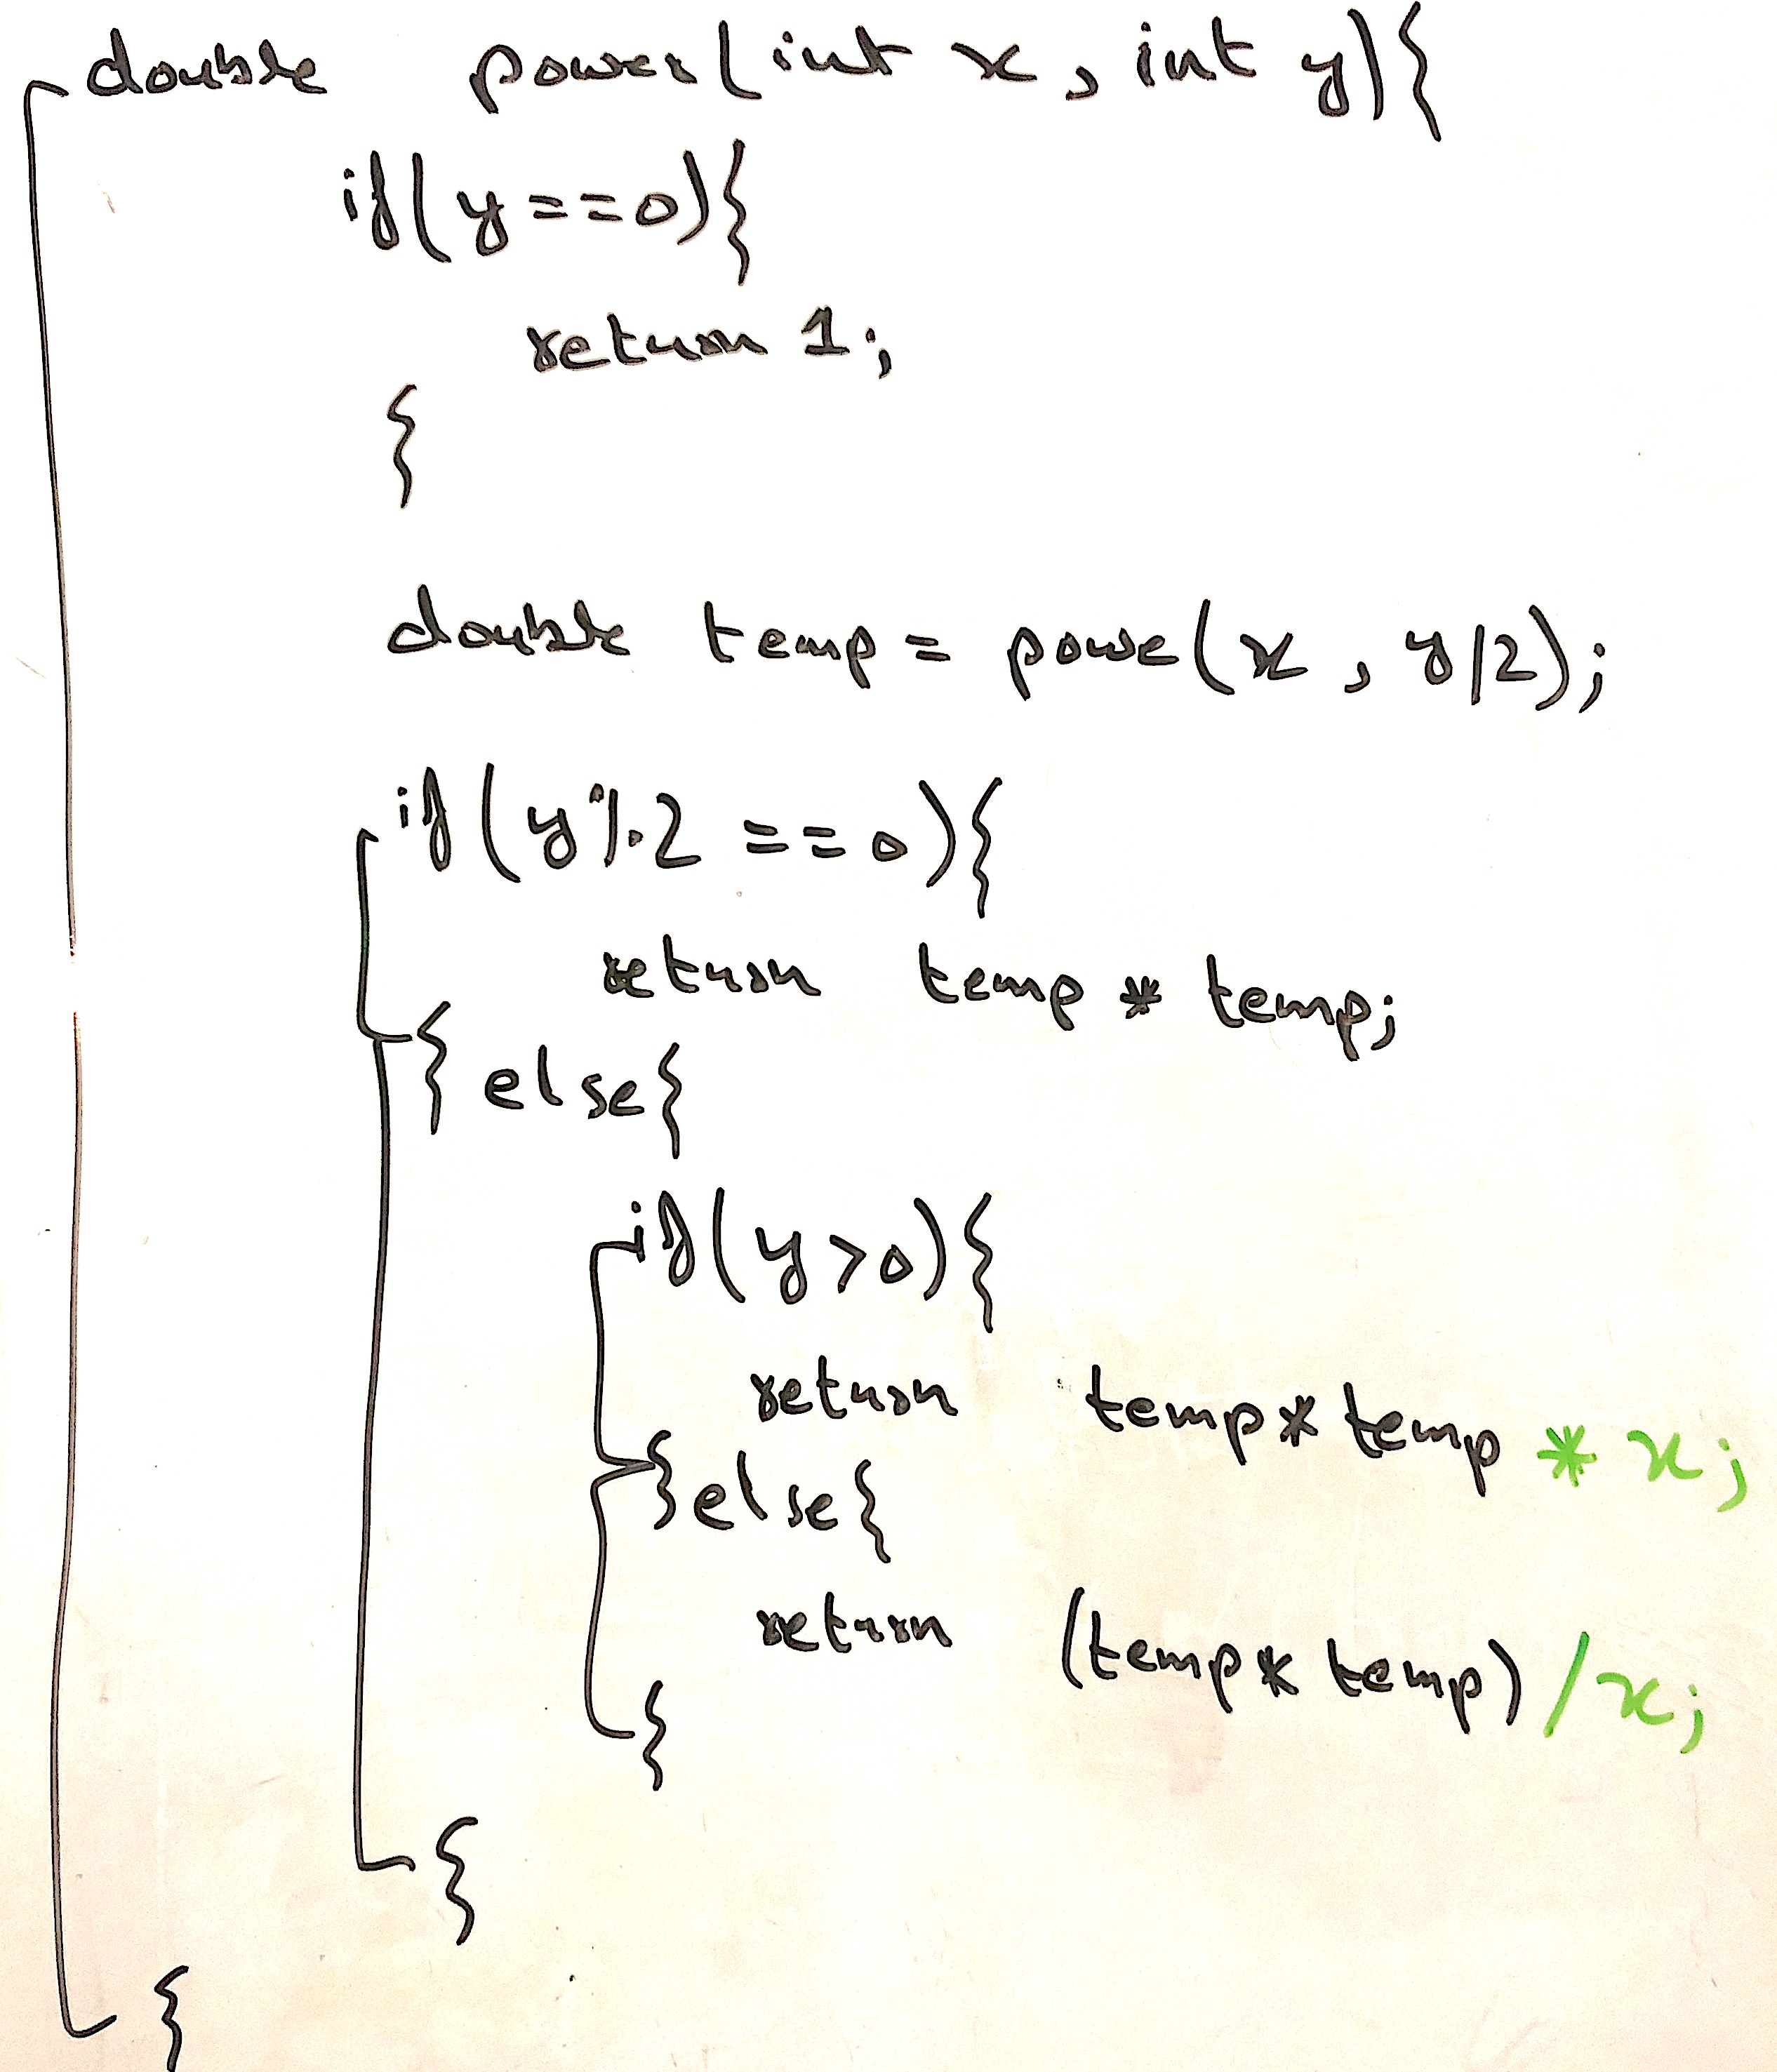 double power(int x, int y){
if(y==0){
return 1;
{
double temp = powe(x, y/2);
if(y%2 ==0){
return temp * temp;
{ else{
if(y>0){
return temp* temp * x;
}else{
return (temp* temp) / x;
{
{
{